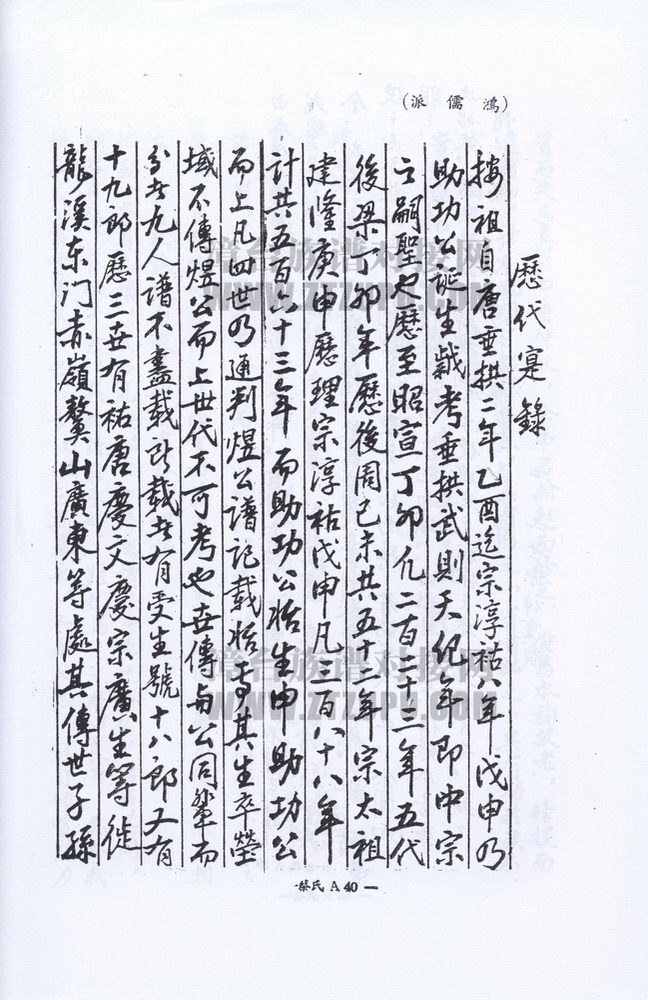 (鴻儒派)
歷代寔錄
按祖自唐垂拱二年乙酉迄宗淳祐八年戊申乃
助功公誕生歲考垂拱武則天紀年即中宗
之嗣聖也歷至昭宣丁卯凡二百二十三年五代
後梁丁卯年歷後周己未共五十二年宗太祖
建隆庚申歷理宗淳祐戊申凡三百八十八年
計共五百六十三年而助功公始生申助功公
而上凡四世乃通判煜公譜記載始專其生卒塋
域不傳煜公而上世代不可考也世傳与公同輩而
分者九人譜不盡載所載者有受生號十八郎又有
十九郎歷三世有祐唐慶文慶宗廣生等徙
龍溪东门赤嶺鰲山廣東等處其傳世子孫
蔡氏 A 40 一
漳台族谱对接网
WWW.ZTZUPU.COM
漳台族谱对接网
WWW.ZTZUPU.COM